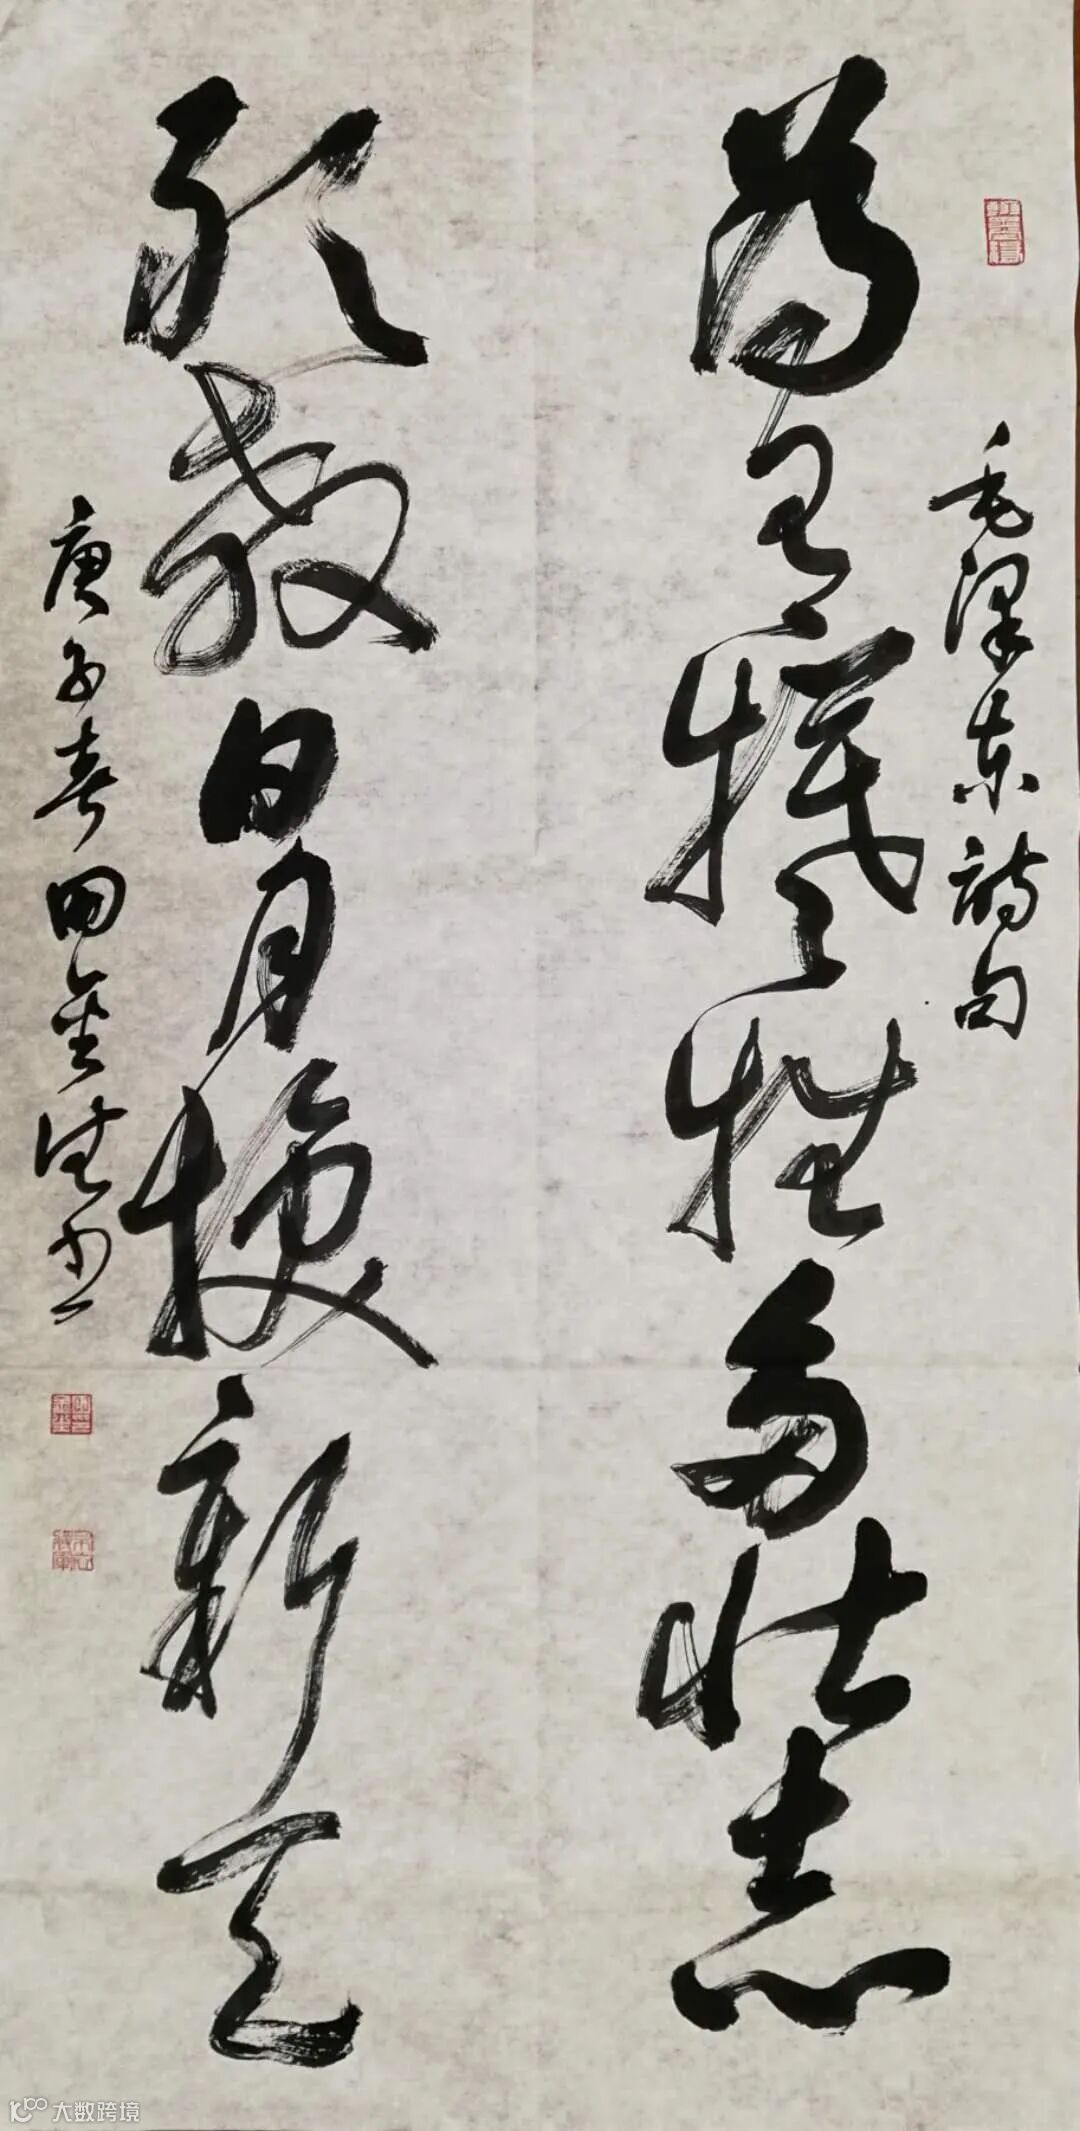 毛泽东诗句
为有犧牲多壮志
敢教日月换新天
庚子春田金书
大数跨境